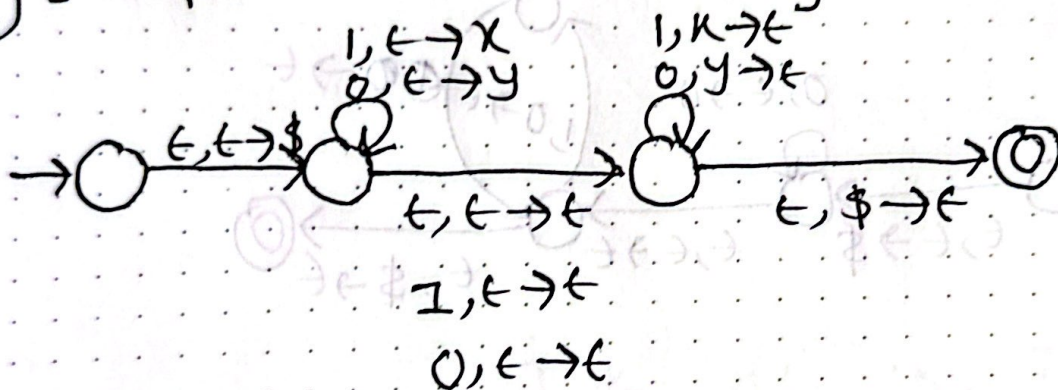 1, ε → x
0, ε → y
1, x → ε
0, y → ε
ε, ε → $
ε, ε → ε
ε, $ → ε
1, ε → ε
0, ε → ε